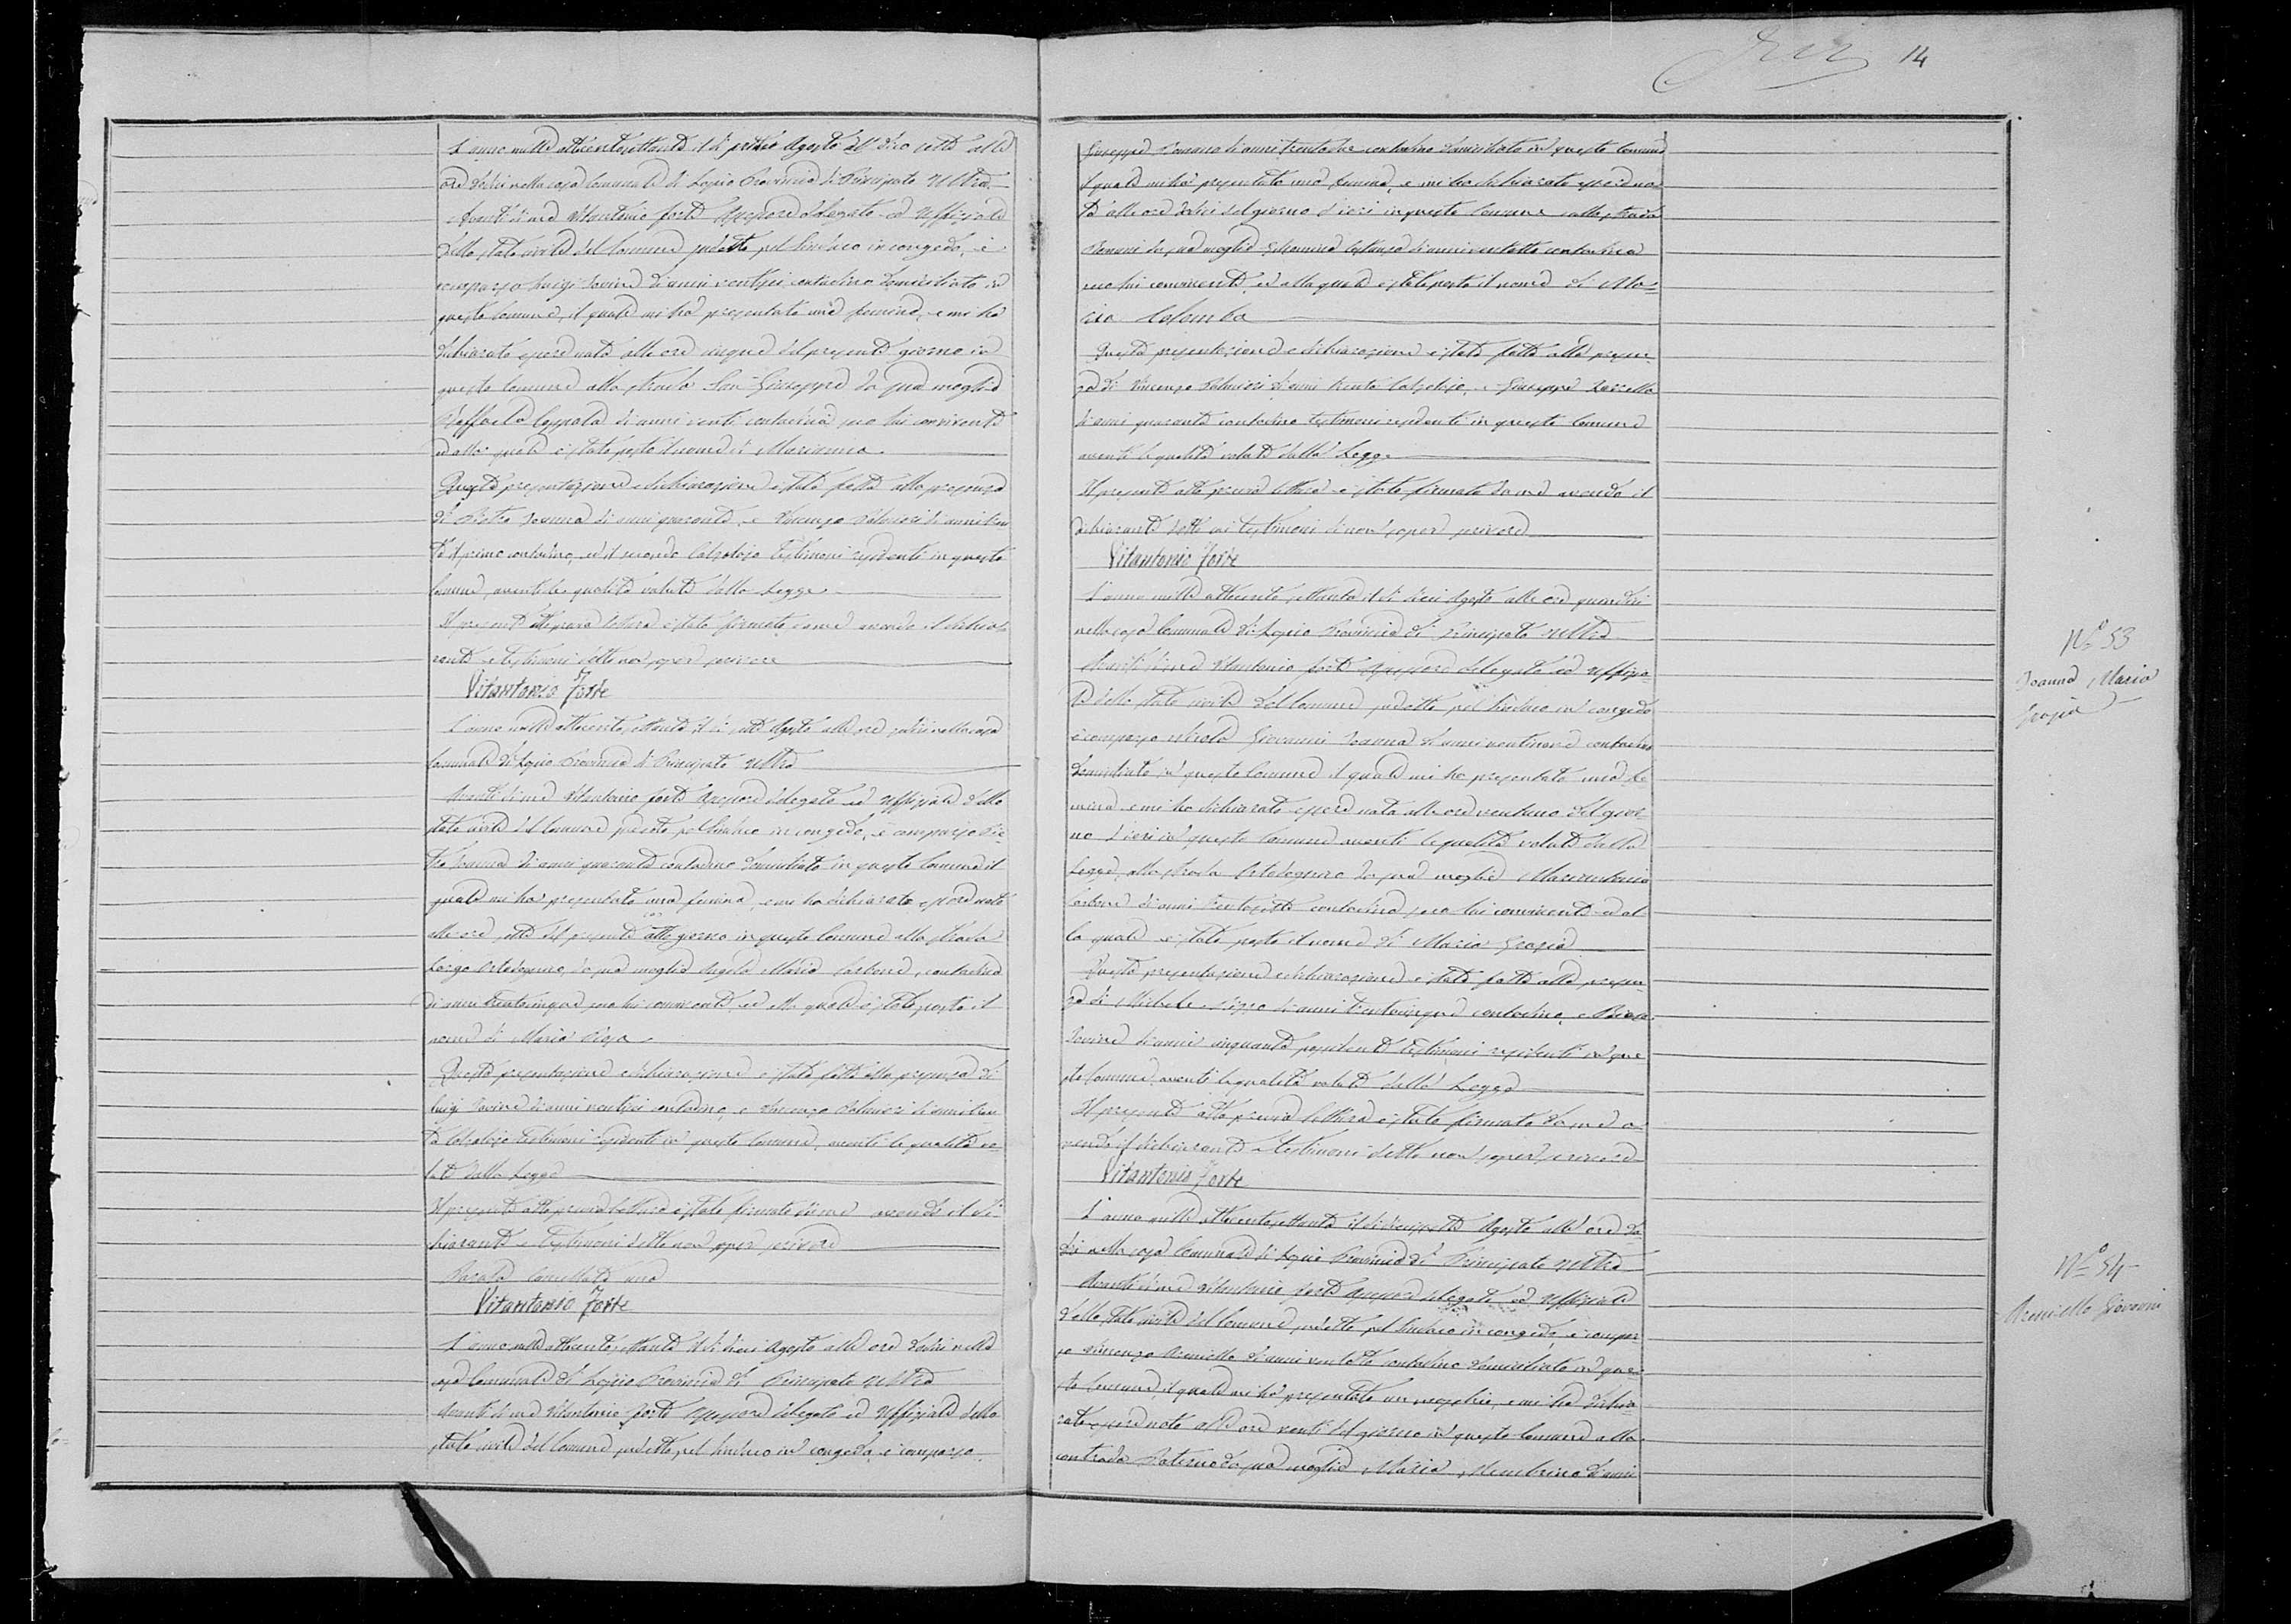 14
L'anno mille ottocentosettanta il dì primo Agosto alle
ore dodici nella casa Comunale di Lapio Provincia di Principato Ultra
Avanti di me Vitantonio Forte Assessore delegato ed Uffiziale
dello stato civile del Comune suddetto pel Sindaco in congedo, è
comparso Luigi Iovine di anni ventisei contadino domiciliato in
questo Comune, il quale mi ha presentato una femina, e mi ha
dichiarato essere nata alle ore cinque del presente giorno in
questo Comune alla strada San Giuseppe da sua moglie
Raffaela di anni venti contadina seco lui convivente
ed alla quale è stato posto il nome di Marianna
Questa presentazione e dichiarazione è stata fatta alla presenza
di Pietro Ioanna di anni quaranta, e Vincenzo Palmieri di anni tren
ta il primo contadino, ed il secondo Calzolajo testimoni residenti in questo
Comune, aventi le qualità volute dalla Legge
Il presente atto previa lettura è stato firmato da me avendo il dichia
rante e testimoni detto non saper scrivere
Vitantonio Forte
L'anno mille ottocentosettanta il dì sette Agosto alle ore nella casa
Comunale di Lapio Provincia di Principato Ultra
Avanti di me Vitantonio Forte Assessore delegato ed Uffiziale dello
stato civile del Comune suddetto pel Sindaco in congedo, è comparso Pie
tro Ioanna di anni quaranta contadino domiciliato in questo Comune il
quale mi ha presentato una femina, e mi ha dichiarato essere nata
alle ore sette del presente atto giorno in questo Comune alla strada
Largo da sua moglie Angela Maria Carbone, contadina
di anni trentacinque seco lui convivente, ed alla quale è stato posto il
nome di Maria Rosa
Questa presentazione e dichiarazione è stata fatta alla presenza di
Luigi Iovine di anni ventisei contadino, e Vincenzo Palmieri di anni tren
ta Calzolajo testimoni residenti in questo Comune, aventi le qualità vo
lute dalla Legge
Il presente atto previa lettura è stato firmato da me avendo il di
chiarante e testimoni detto non saper scrivere
Parola cancellata una
Vitantonio Forte
L'anno mille ottocentosettanta il dì dieci Agosto alle ore dodici nella
casa Comunale di Lapio Provincia di Principato Ultra
Avanti di me Vitantonio Forte Assessore delegato ed Uffiziale dello
stato civile del Comune suddetto, pel Sindaco in congedo, è comparso
Giuseppe Romano di anni trentadue contadino domiciliato in questo Comune
il quale mi ha presentato una femina, e mi ha dichiarato essere na
ta alle ore dodici del giorno d'ieri in questo Comune alla strada
Romani da sua moglie Filomena di anni ventotto contadina
seco lui convivente, ed alla quale è stato posto il nome di Ma
ria Colomba
Questa presentazione e dichiarazione è stata fatta alla presen
za di Vincenzo Palmieri di anni trenta Calzolajo, e Giuseppe
di anni quaranta contadino testimoni residenti in questo Comune
aventi le qualità volute dalla Legge
Il presente atto previa lettura è stato firmato da me avendo il
dichiarante detto coi testimoni di non saper scrivere
Vitantonio Forte
L'anno mille ottocento settanta il dì dieci Agosto alle ore quindici
nella casa Comunale di Lapio Provincia di Principato Ultra
Avanti di me Vitantonio Forte Assessore delegato ed Uffizia
le dello stato civile del Comune suddetto pel Sindaco in congedo
è comparso Giovanni Ioanna di anni ventinove contadino
domiciliato in questo Comune il quale mi ha presentato una fe
mina e mi ha dichiarato essere nata alle ore ventuno del gior
no d'ieri in questo Comune aventi le qualità volute dalla
Legge, alla strada da sua moglie Mariantonia
Carbone di anni contadina seco lui convivente ed al
la quale è stato posto il nome di Maria Grazia
Questa presentazione e dichiarazione è stata fatta alla presen
za di Michele di anni trentacinque contadino, e
Iovine di anni cinquanta possidente testimoni residenti in que
sto Comune, aventi le qualità volute dalla Legge
Il presente atto previa lettura è stato firmato da me a
vendo il dichiarante e testimoni detto non saper scrivere
Vitantonio Forte
L'anno mille ottocentosettanta il dì diecissette Agosto alle ore do
dici nella casa Comunale di Lapio Provincia di Principato Ultra
Avanti di me Vitantonio Forte Assessore delegato ed Uffiziale
dello stato civile del Comune suddetto pel Sindaco in congedo, è compar
so Vincenzo di anni ventotto contadino domiciliato in que
sto Comune, il quale mi ha presentato un maschio, e mi ha dichia
rato essere nato alle ore venti del giorno in questo Comune alla
contrada Paterno da sua moglie Maria di anni
N.° 53
Ioanna Maria
Grazia
N.° 54
Giovanni